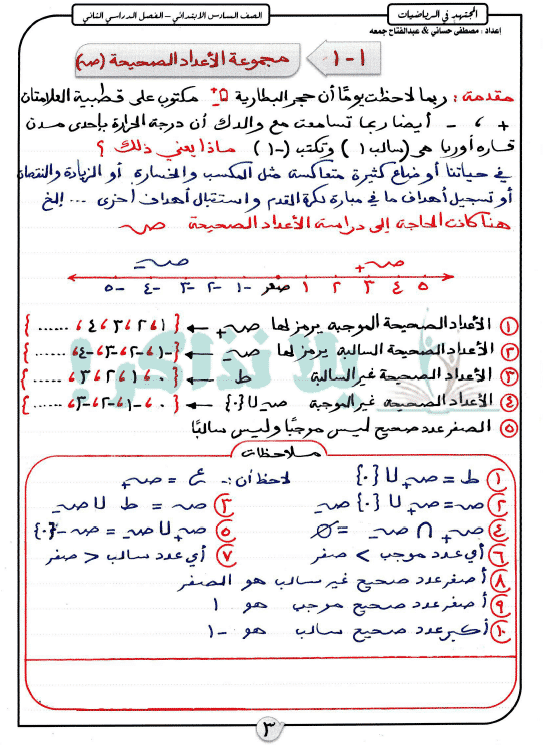 المجتهد في الرياضيات
الصف السادس الابتدائي - الفصل الدراسي الثاني
إعداد : مصطفى حساني & عبدالفتاح جمعه
١-١ مجموعة الأعداد الصحيحة (صـ)
مقدمة : ربما لاحظت يومًا أن حجر البطارية مكتوب على قطبية العلامتان
+ ، - أيضا ربما تسامعت مع والدك أن درجة الحرارة بإحدى مدن
قاره أوربا هى (سالب ١) وتكتب (-١) ماذا يعني ذلك ؟
في حياتنا أوضاع كثيرة متعاكسة مثل المكسب والخساره أو الزيادة والنقصان
أو تسجيل أهداف ما في مباره لكرة القدم واستقبال أهداف أخرى ... إلخ
هنا كانت الحاجة إلى دراسة الأعداد الصحيحة صـ
صـ- صـ+
-٥ -٤ -٣ -٢ -١ صفر ١ ٢ ٣ ٤ ٥
١ الأعداد الصحيحة الموجبة يرمز لها صـ+ ← {١، ٢، ٣، ٤، ......}
٢ الأعداد الصحيحة السالبة يرمز لها صـ- ← {-١، -٢، -٣، -٤، ......}
٣ الأعداد الصحيحة غير السالبة ط ← {٠، ١، ٢، ٣، ......}
٤ الأعداد الصحيحة غير الموجبة صـ- ∪ {٠} ← {٠، -١، -٢، -٣، ......}
٥ الصفر عدد صحيح ليس موجبًا وليس سالبًا
يلا نذاكر!
ملاحظات
١ ط = صـ+ ∪ {٠} لاحظ أن :- ع = صـ+
٢ صـ = صـ+ ∪ {٠} ∪ صـ- ٣ صـ = ط ∪ صـ-
٤ صـ+ ∩ صـ- = ∅ ٥ صـ+ ∪ صـ- = صـ - {٠}
٦ أي عدد موجب > صفر ٧ أي عدد سالب < صفر
٨ أصغر عدد صحيح غير سالب هو الصفر
٩ أصغر عدد صحيح موجب هو ١
١٠ أكبر عدد صحيح سالب هو -١
٣